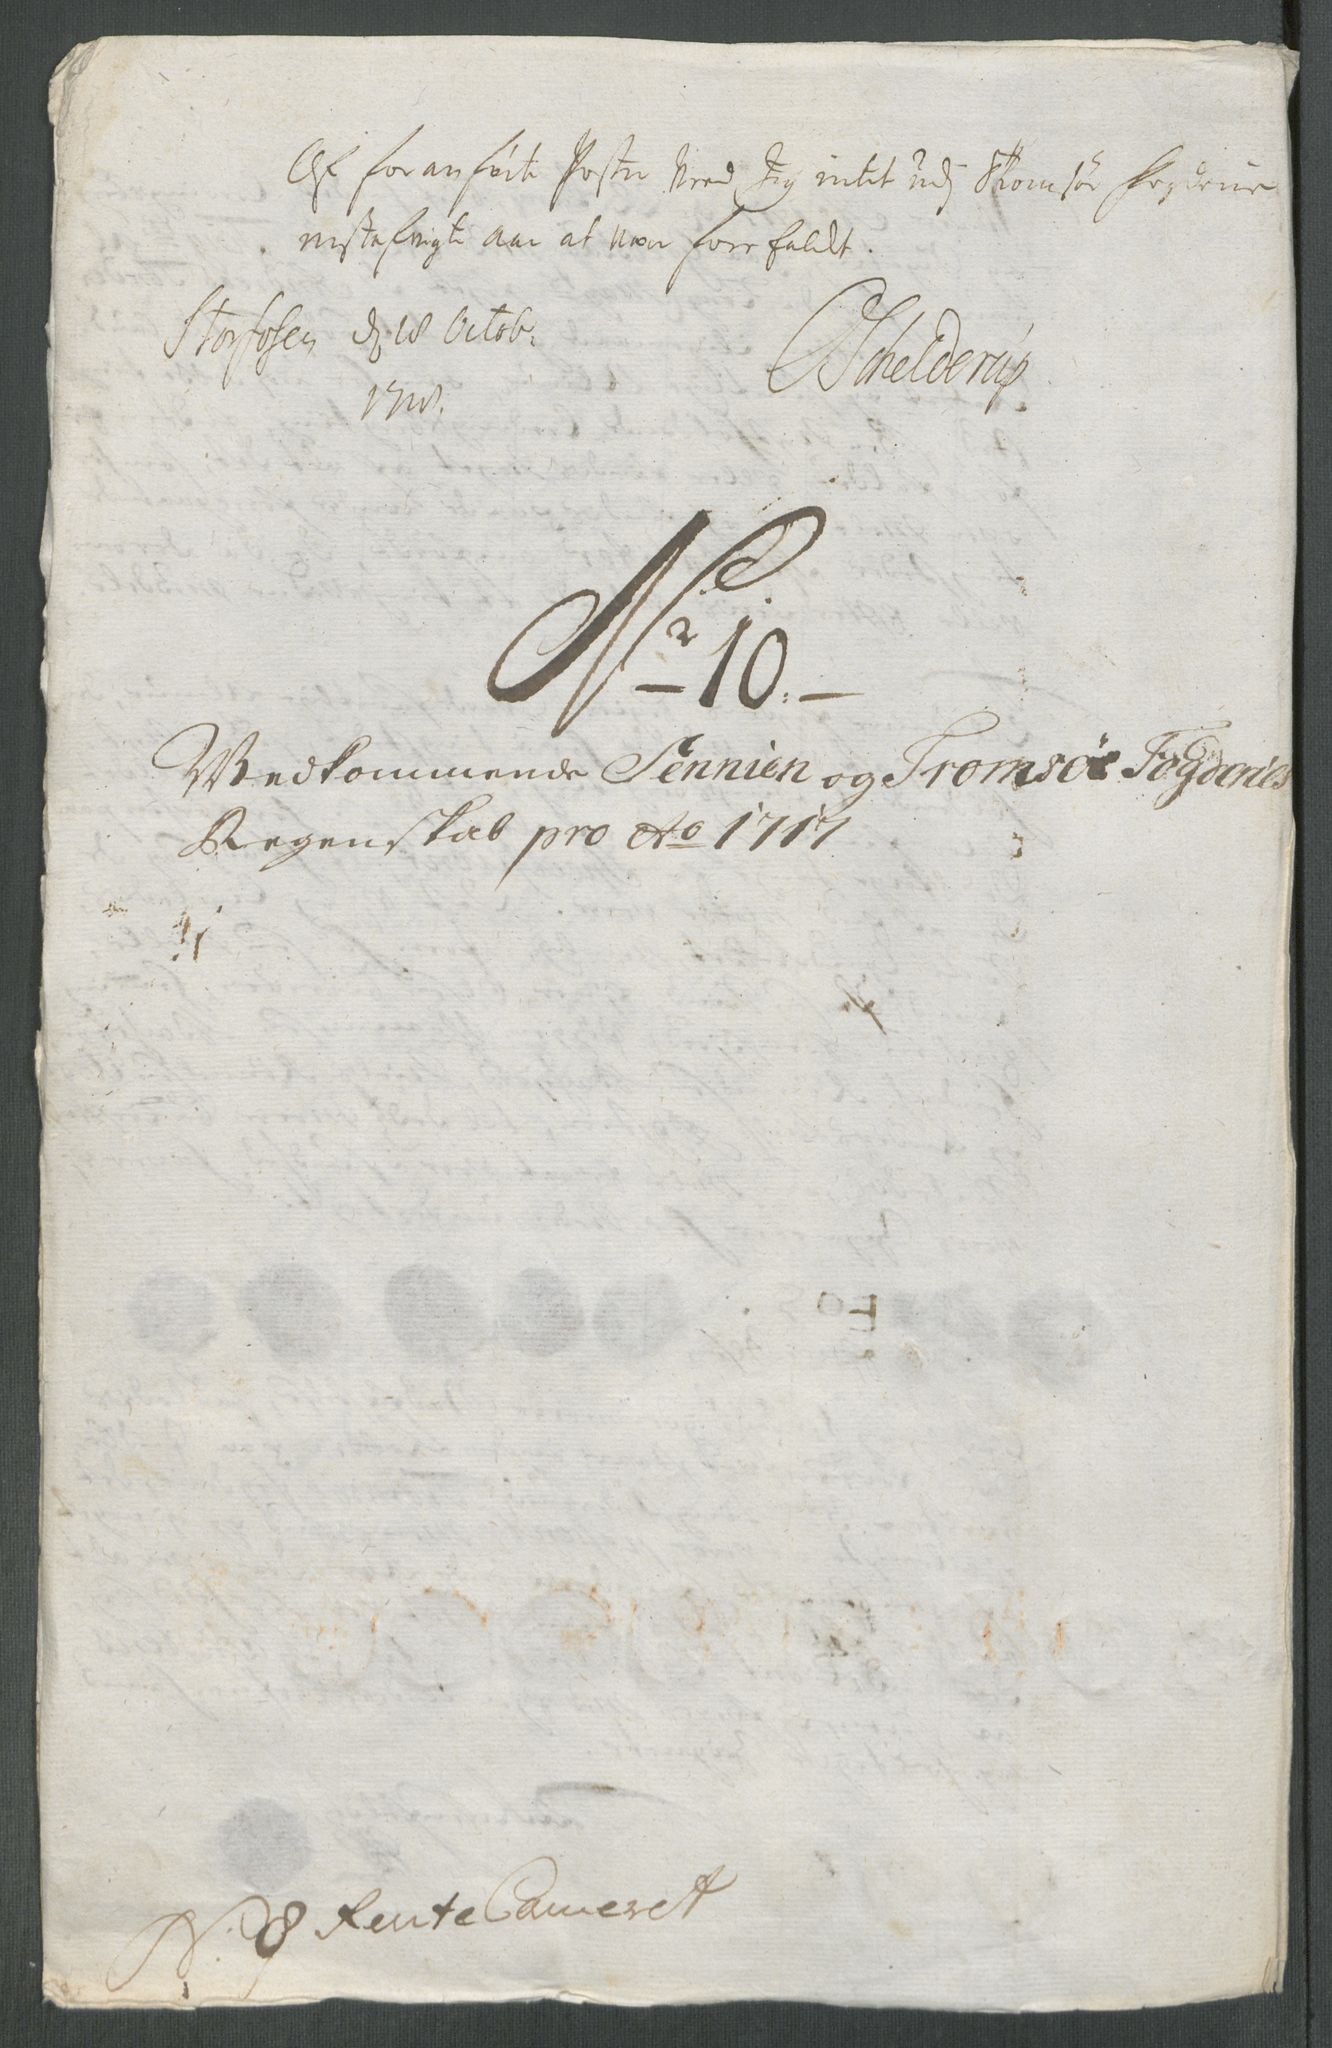 Af foranførte Poster Veed Jeg intet udj Tromsøe Fogderie
nestafvigte Aar at være forefaldt.
Storfosen d 18 Octob:
1718.
Schelderup
No 10.
Vedkommende Sennien og Tromsøe Fogderies
Regenskab pro Ao 1717
N. 8 RenteCameret